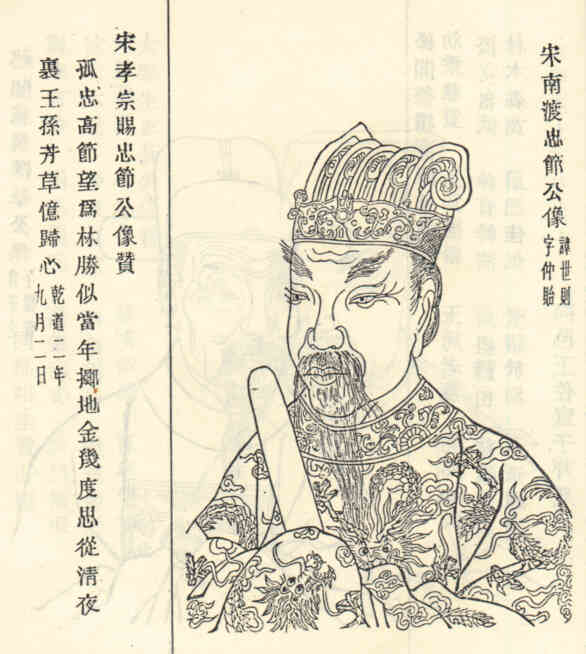 宋南渡忠節公像
諱世則
字仲貽
宋孝宗賜忠節公像贊
孤忠高節望爲林勝似當年擲地金幾度思從清夜
裏王孫芳草億歸心
乾道二年
九月一二日